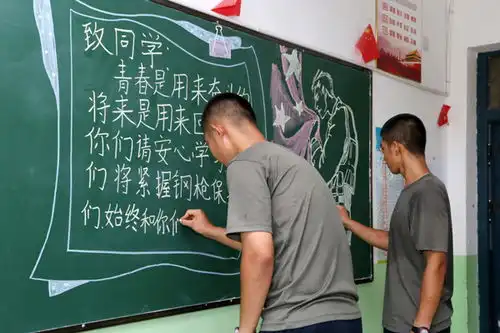 致同学:
青春是用来奋
将来是用来回
你们请安心学
们将紧握钢枪保
们,始终和你们